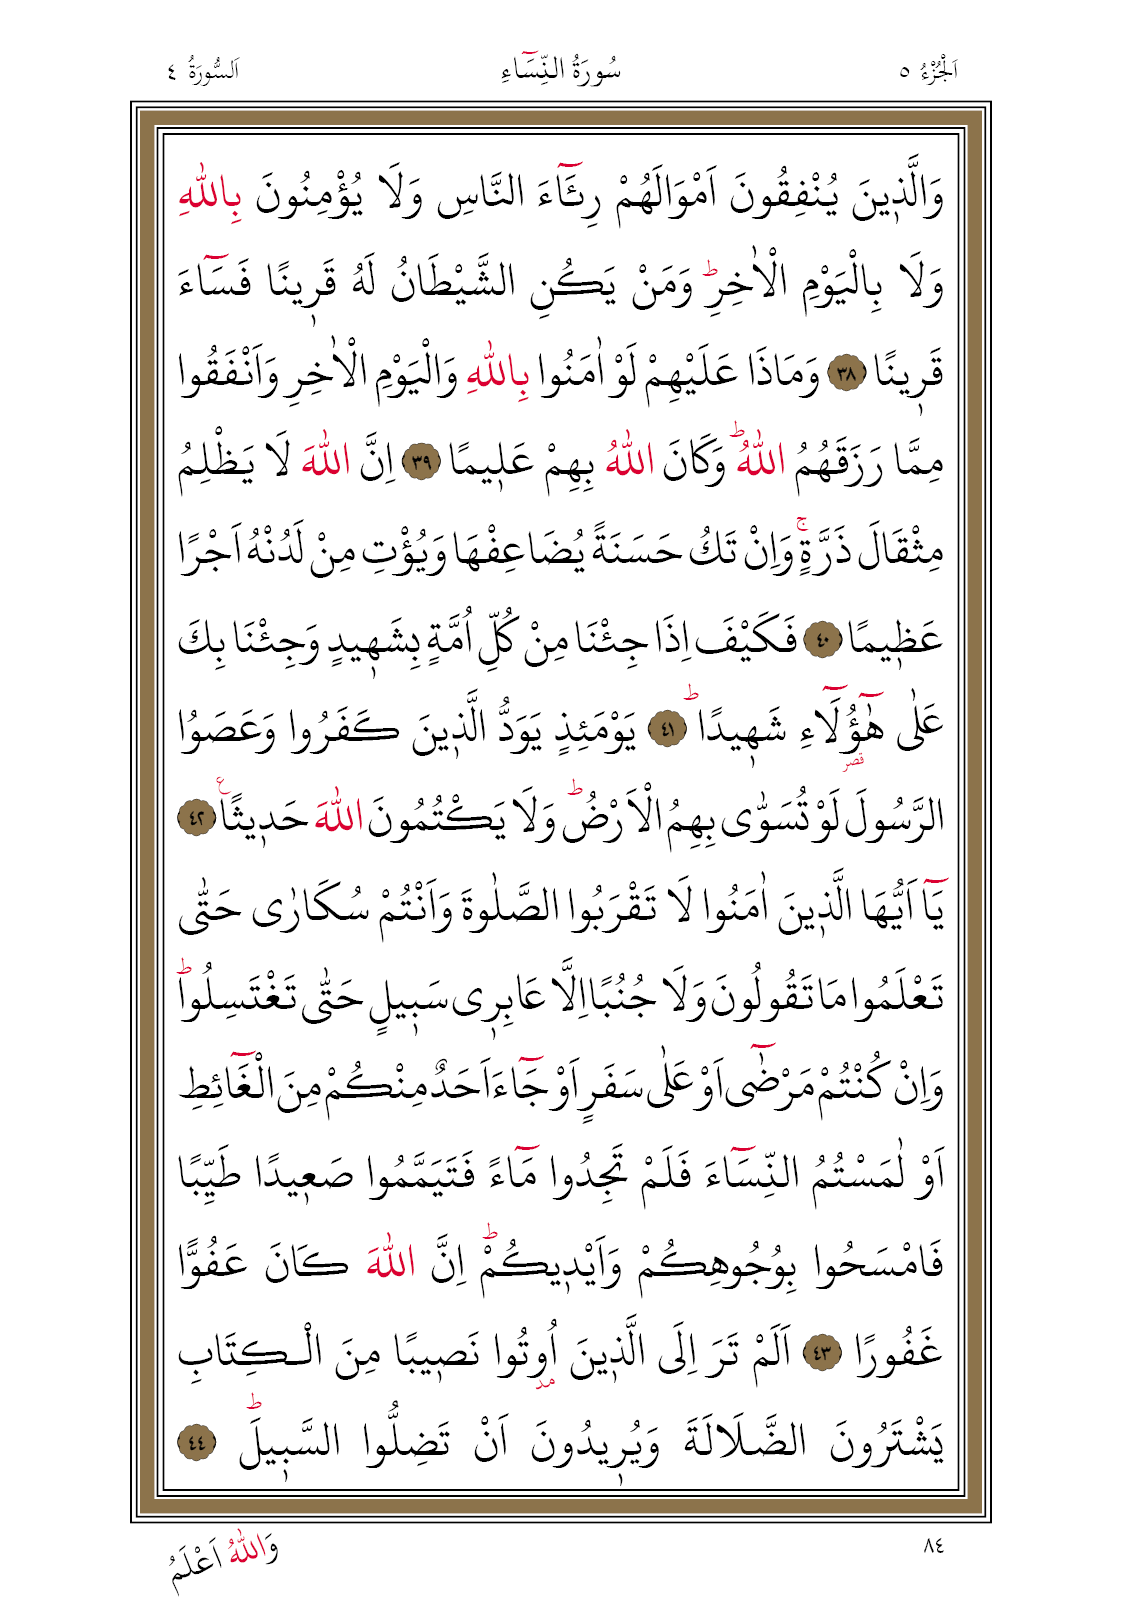 اَلْجُزْءُ ٥ سُورَةُ النِّسَٓاءِ اَلسُّورَةُ ٤
وَالَّذ۪ينَ يُنْفِقُونَ اَمْوَالَهُمْ رِئَٓاءَ النَّاسِ وَلَا يُؤْمِنُونَ بِاللّٰهِ
وَلَا بِالْيَوْمِ الْاٰخِرِۜ وَمَنْ يَكُنِ الشَّيْطَانُ لَهُ قَر۪ينًا فَسَٓاءَ
قَر۪ينًا ﴿٣٨﴾ وَمَاذَا عَلَيْهِمْ لَوْ اٰمَنُوا بِاللّٰهِ وَالْيَوْمِ الْاٰخِرِ وَاَنْفَقُوا
مِمَّا رَزَقَهُمُ اللّٰهُۜ وَكَانَ اللّٰهُ بِهِمْ عَل۪يمًا ﴿٣٩﴾ اِنَّ اللّٰهَ لَا يَظْلِمُ
مِثْقَالَ ذَرَّةٍۚ وَاِنْ تَكُ حَسَنَةً يُضَاعِفْهَا وَيُؤْتِ مِنْ لَدُنْهُ اَجْرًا
عَظ۪يمًا ﴿٤٠﴾ فَكَيْفَ اِذَا جِئْنَا مِنْ كُلِّ اُمَّةٍ بِشَه۪يدٍ وَجِئْنَا بِكَ
عَلٰى هٰٓؤُ۬لَٓاءِ شَه۪يدًاۜ ﴿٤١﴾ يَوْمَئِذٍ يَوَدُّ الَّذ۪ينَ كَفَرُوا وَعَصَوُا
قصر
الرَّسُولَ لَوْ تُسَوّٰى بِهِمُ الْاَرْضُۜ وَلَا يَكْتُمُونَ اللّٰهَ حَد۪يثًا۟ ﴿٤٢﴾
يَٓا اَيُّهَا الَّذ۪ينَ اٰمَنُوا لَا تَقْرَبُوا الصَّلٰوةَ وَاَنْتُمْ سُكَارٰى حَتّٰى
تَعْلَمُوا مَا تَقُولُونَ وَلَا جُنُبًا اِلَّا عَابِر۪ى سَب۪يلٍ حَتّٰى تَغْتَسِلُواۜ
وَاِنْ كُنْتُمْ مَرْضٰٓى اَوْ عَلٰى سَفَرٍ اَوْ جَٓاءَ اَحَدٌ مِنْكُمْ مِنَ الْغَٓائِطِ
اَوْ لٰمَسْتُمُ النِّسَٓاءَ فَلَمْ تَجِدُوا مَٓاءً فَتَيَمَّمُوا صَع۪يدًا طَيِّبًا
فَامْسَحُوا بِوُجُوهِكُمْ وَاَيْد۪يكُمْۜ اِنَّ اللّٰهَ كَانَ عَفُوًّا
غَفُورًا ﴿٤٣﴾ اَلَمْ تَرَ اِلَى الَّذ۪ينَ اُو۫تُوا نَص۪يبًا مِنَ الْكِتَابِ
مد
يَشْتَرُونَ الضَّلَالَةَ وَيُر۪يدُونَ اَنْ تَضِلُّوا السَّب۪يلَۜ ﴿٤٤﴾
٨٤ وَاللّٰهُ اَعْلَمُ